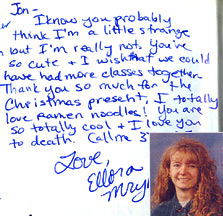 Jon-
I know you probably
think I'm a little strange
but I'm really not. You've
so cute + I wish that we could
have had more classes together
Thank you so much for the
Christmas present, I totally
love Ramen noodles! You are
so totally cool + I love you
to death. Call me
Love,
Ellora